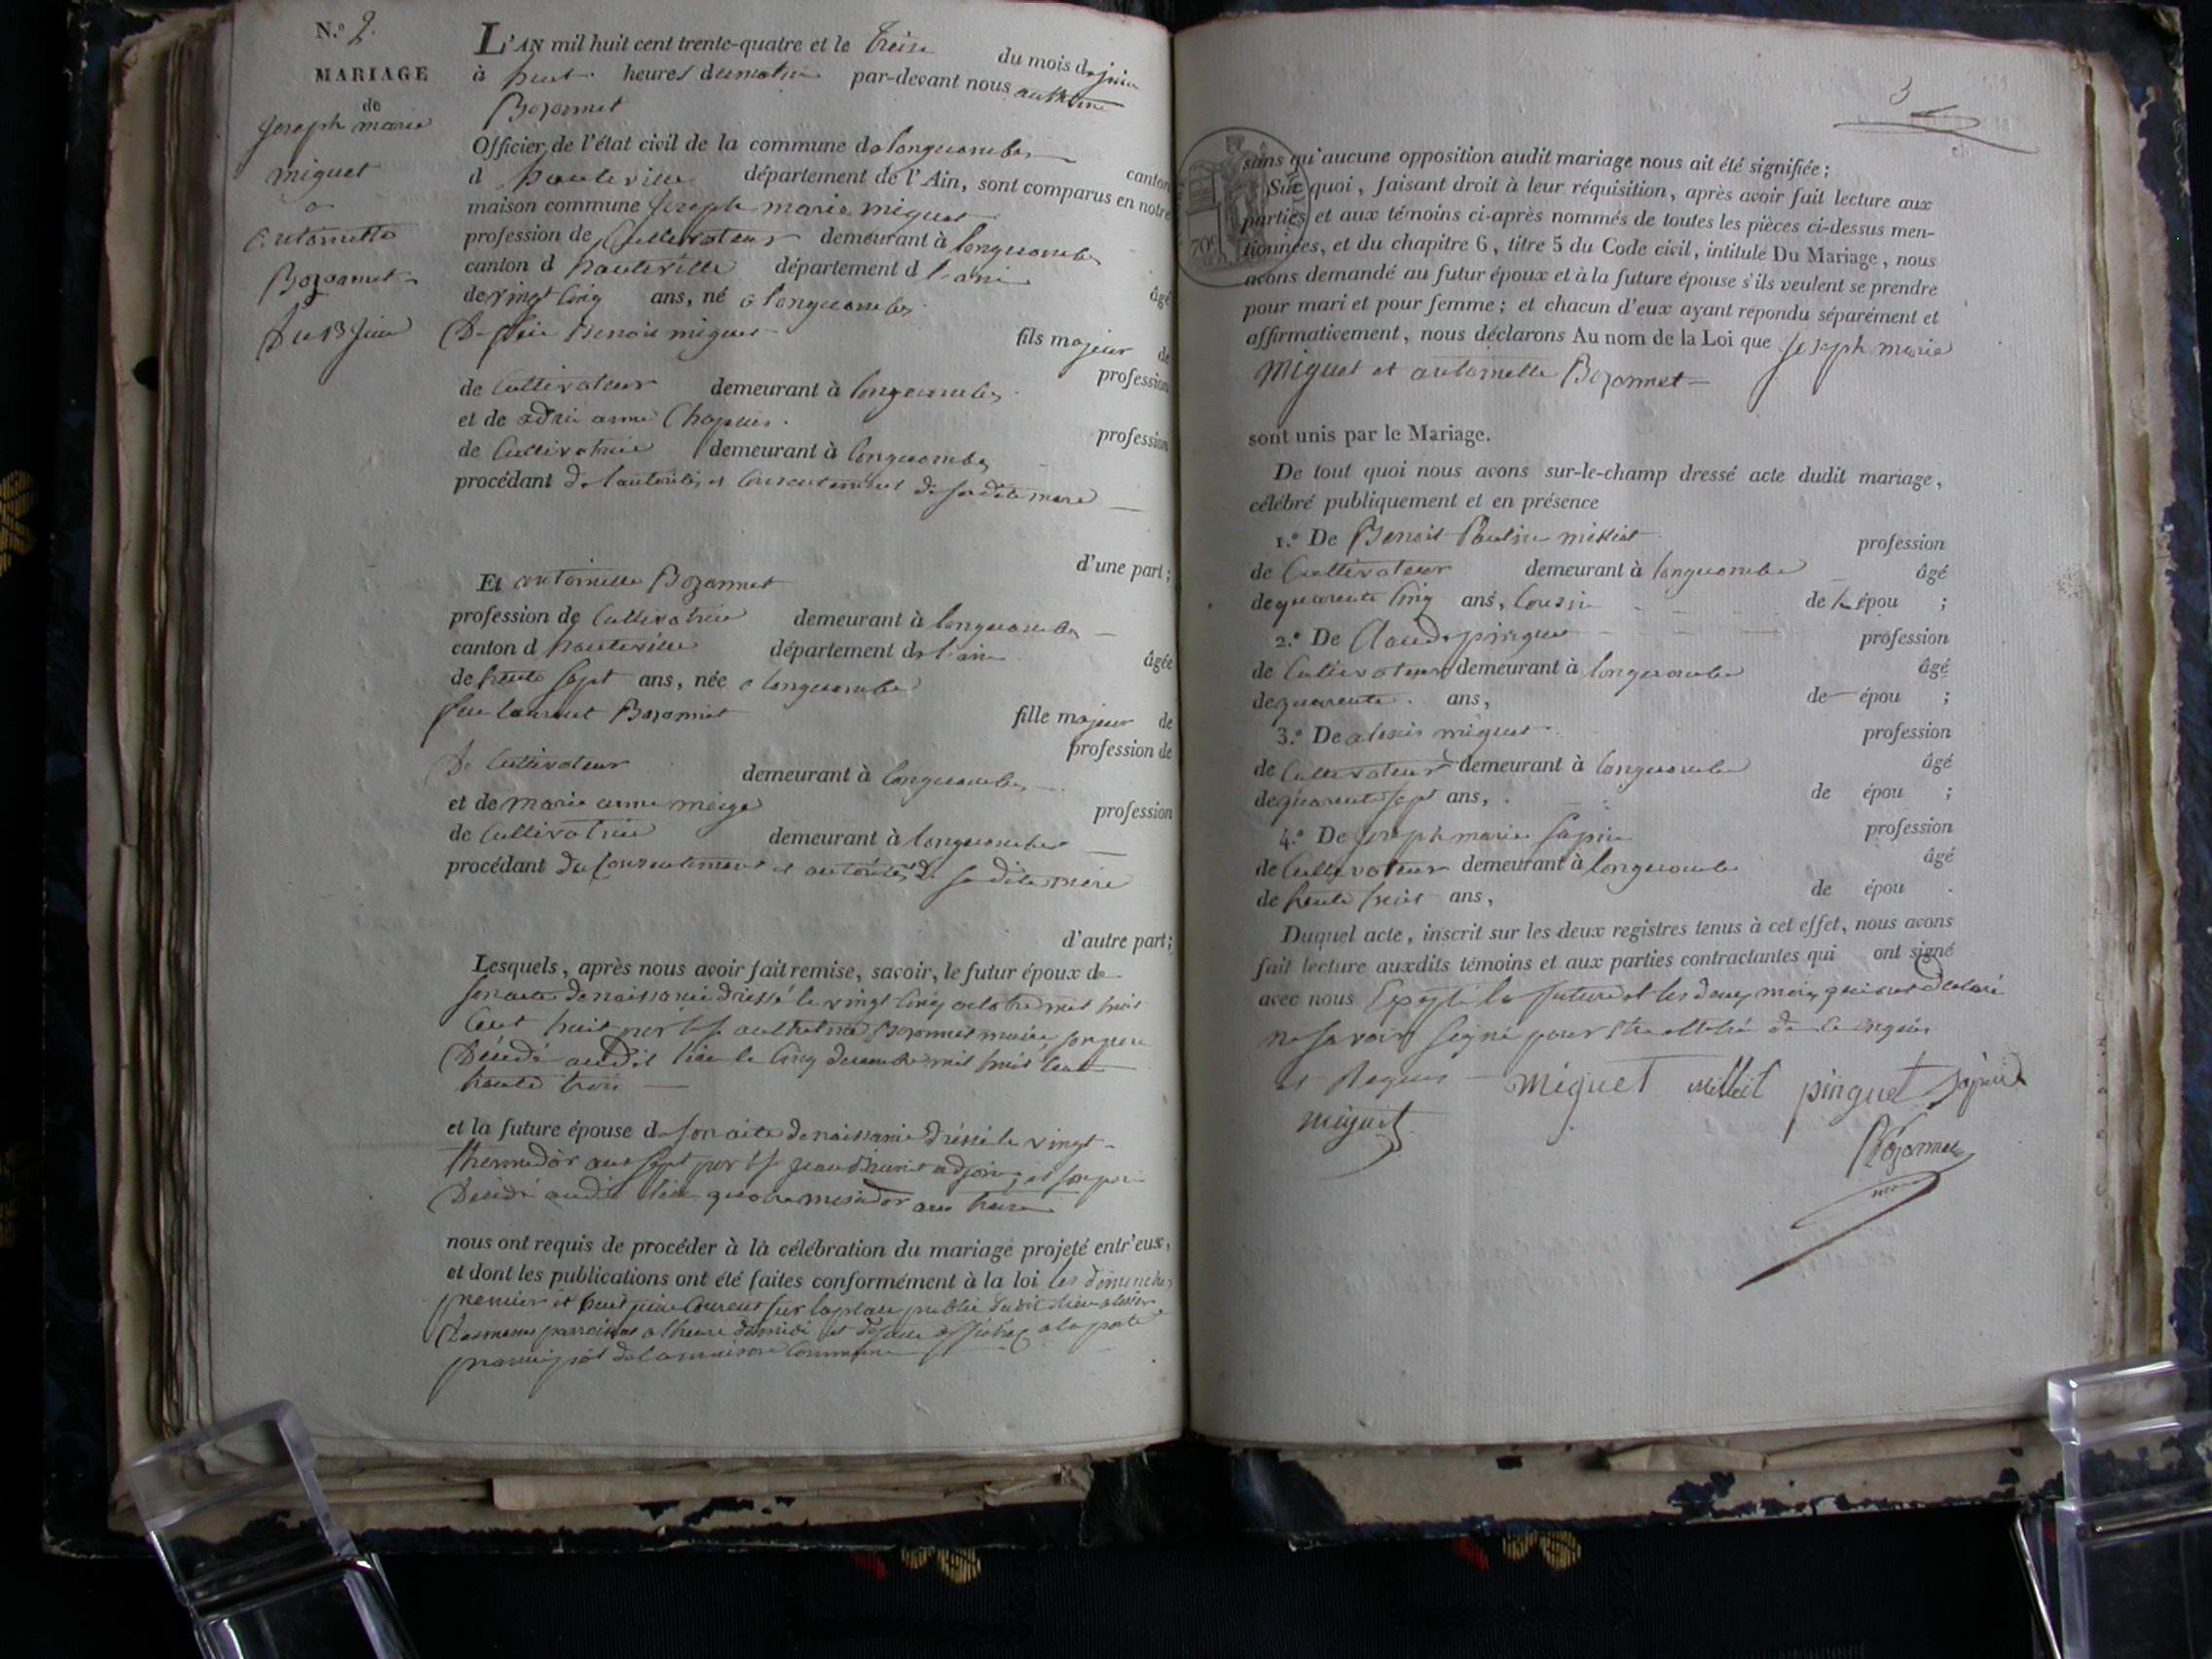 N.º 2.
MARIAGE
de
joseph marie
miguet
a
antoinette
Bozonnet
Du 13 juin
L'AN mil huit cent trente-quatre et le treize du mois de juin
à huit heures du matin par-devant nous anthelme
Bozonnet
Officier de l'état civil de la commune de longecombe canton
d hauteville département de l'Ain, sont comparus en notre
maison commune joseph marie miguet
profession de Cultivateur demeurant à longecombe
canton d hauteville département d l'ain âgé
de vingt cinq ans, né a longecombe
fils majeur de
De feu Benoit miguet profession
de Cultivateur demeurant à longecombe
et de anne Chapuis profession
de Cultivatrice demeurant à longecombe
procédant de l'autorité et consentement de sa dite mere
d'une part;
Et antoinette Bozonnet
profession de Cultivatrice demeurant à longecombe
canton d hauteville département de l'ain âgée
de trente sept ans, née a longecombe
fille majeur de
feu laurent Bozonnet profession de
De Cultivateur demeurant à longecombe
et de marie anne profession
de Cultivatrice demeurant à longecombe
procédant du consentement et autorité de sa dite mere
d'autre part;
Lesquels, après nous avoir fait remise, savoir, le futur époux de
son acte de naissance dressé le vingt cinq octobre mil huit
Cent huit par anthelme Bozonnet maire, son pere
Décédé audit lieu le cinq decembre mil huit cent
trente trois
et la future épouse d son acte de naissance dressé le vingt
thermidor an sept par jean adjoint; et son pere
Décédé audit lieu quatre messidor an treize
nous ont requis de procéder à la célébration du mariage projeté entr'eux,
et dont les publications ont été faites conformément à la loi les dimenches
premier et huit juin courent sur la place public dudit lieu
a lheure de midi et a la porte
principal de la maison Commune
3
70c
sans qu'aucune opposition audit mariage nous ait été signifiée;
Sur quoi, faisant droit à leur réquisition, après avoir fait lecture aux
parties et aux témoins ci-après nommés de toutes les pièces ci-dessus men-
tionnées, et du chapitre 6, titre 5 du Code civil, intitulé Du Mariage, nous
avons demandé au futur époux et à la future épouse s'ils veulent se prendre
pour mari et pour femme; et chacun d'eux ayant répondu séparément et
affirmativement, nous déclarons Au nom de la Loi que joseph marie
Miguet et antoinette Bozonnet
sont unis par le Mariage.
De tout quoi nous avons sur-le-champ dressé acte dudit mariage,
célébré publiquement et en présence
1.º De Benoit Paulin profession
de Cultivateur demeurant à longecombe âgé
de quarente cinq ans, cousin de l'épou ;
2.º De Claude pinguet profession
de Cultivateur demeurant à longecombe âgé
de quarente ans, de épou ;
3.º De alexis miguet profession
de Cultivateur demeurant à longecombe âgé
de quarente sept ans, de épou ;
4.º De joseph marie profession
de Cultivateur demeurant à longecombe âgé
de trente ans, de épou .
Duquel acte, inscrit sur les deux registres tenus à cet effet, nous avons
fait lecture auxdits témoins et aux parties contractantes qui ont signé
avec nous Excepté la future et les deux meres qui ont déclaré
ne savoir signé pour de ce enquis
et Requis miguet pinguet
miguet
Bozonnet
maire